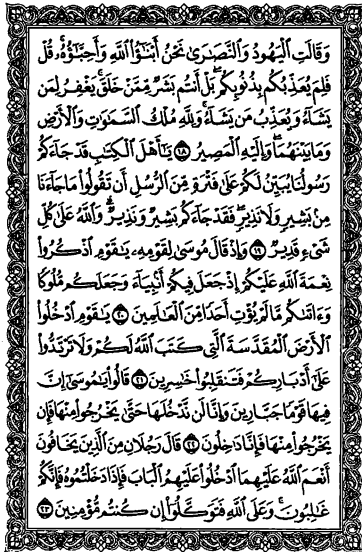 وَقَالَتِ الْيَهُودُ وَالنَّصَـٰرَىٰ نَحْنُ أَبْنَـٰٓؤُا۟ اللَّهِ وَأَحِبَّـٰٓؤُهُۥ ۚ قُلْ
فَلِمَ يُعَذِّبُكُم بِذُنُوبِكُم ۖ بَلْ أَنتُم بَشَرٌ مِّمَّنْ خَلَقَ ۚ يَغْفِرُ لِمَن
يَشَآءُ وَيُعَذِّبُ مَن يَشَآءُ ۚ وَلِلَّهِ مُلْكُ السَّمَـٰوَٰتِ وَالْأَرْضِ
وَمَا بَيْنَهُمَا ۖ وَإِلَيْهِ الْمَصِيرُ ١٨ يَـٰٓأَهْلَ الْكِتَـٰبِ قَدْ جَآءَكُمْ
رَسُولُنَا يُبَيِّنُ لَكُمْ عَلَىٰ فَتْرَةٍ مِّنَ الرُّسُلِ أَن تَقُولُوا۟ مَا جَآءَنَا
مِنۢ بَشِيرٍ وَلَا نَذِيرٍ ۖ فَقَدْ جَآءَكُم بَشِيرٌ وَنَذِيرٌ ۗ وَاللَّهُ عَلَىٰ كُلِّ
شَىْءٍ قَدِيرٌ ١٩ وَإِذْ قَالَ مُوسَىٰ لِقَوْمِهِۦ يَـٰقَوْمِ اذْكُرُوا۟
نِعْمَةَ اللَّهِ عَلَيْكُمْ إِذْ جَعَلَ فِيكُمْ أَنۢبِيَآءَ وَجَعَلَكُم مُّلُوكًا
وَءَاتَىٰكُم مَّا لَمْ يُؤْتِ أَحَدًا مِّنَ الْعَـٰلَمِينَ ٢٠ يَـٰقَوْمِ ادْخُلُوا۟
الْأَرْضَ الْمُقَدَّسَةَ الَّتِى كَتَبَ اللَّهُ لَكُمْ وَلَا تَرْتَدُّوا۟
عَلَىٰٓ أَدْبَارِكُمْ فَتَنقَلِبُوا۟ خَـٰسِرِينَ ٢١ قَالُوا۟ يَـٰمُوسَىٰٓ إِنَّ
فِيهَا قَوْمًا جَبَّارِينَ وَإِنَّا لَن نَّدْخُلَهَا حَتَّىٰ يَخْرُجُوا۟ مِنْهَا فَإِن
يَخْرُجُوا۟ مِنْهَا فَإِنَّا دَٰخِلُونَ ٢٢ قَالَ رَجُلَانِ مِنَ الَّذِينَ يَخَافُونَ
أَنْعَمَ اللَّهُ عَلَيْهِمَا ادْخُلُوا۟ عَلَيْهِمُ الْبَابَ فَإِذَا دَخَلْتُمُوهُ فَإِنَّكُمْ
غَـٰلِبُونَ ۚ وَعَلَى اللَّهِ فَتَوَكَّلُوٓا۟ إِن كُنتُم مُّؤْمِنِينَ ٢٣